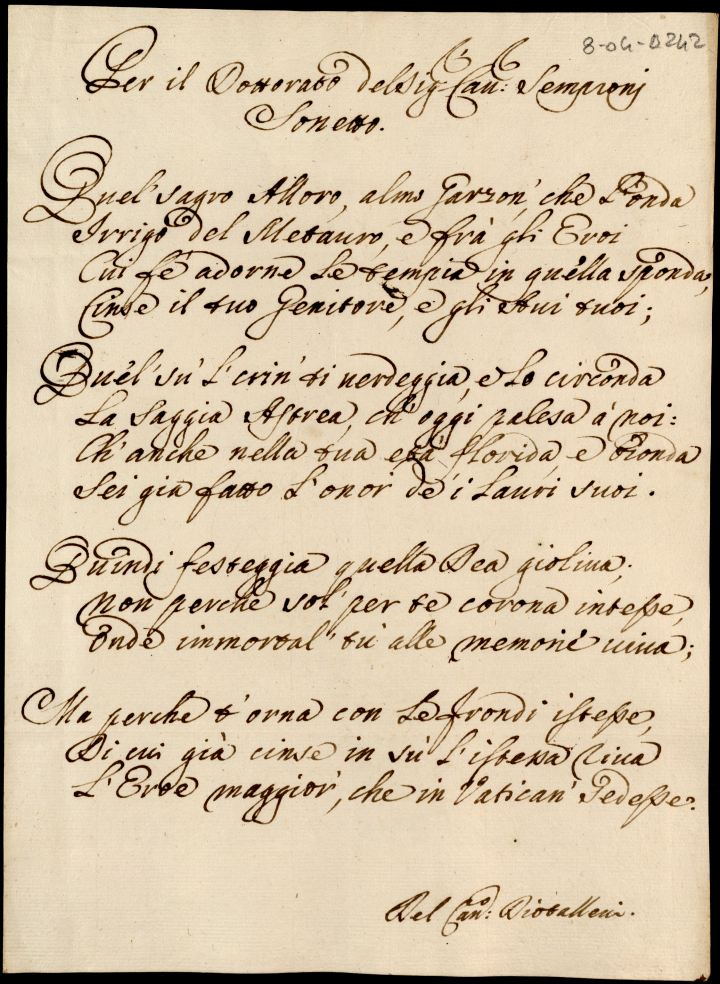 8-04-0242
Per il Dottorato del Sig.r Cav.r: Sempronj
Sonetto.
Quel' sagro Alloro, almo Garzon', che l'onda
Irrigò del Metauro, e frà gli Eroi
Cui fé adorne le tempia in quella sponda,
Cinse il tuo Genitore, e gli Avi tuoi;
Quél' sù l'crin' ti verdeggia, e lo circonda
La saggia Astrea, ch'oggi palesa à noi:
Ch'anche nella tua età florida, e bionda
Sei già fatto l'onor de'i Lauri suoi.
Quindi festeggia quella Dea gioliva,
Non perche sol' per te corona intesse,
Onde immortal' tù alle memorie viva;
Ma perche t'orna con le frondi istesse,
Di cui già cinse in sù l'istessa riva
L'Eroe maggior', che in Vatican' sedesse.
Del Can.co: Diotallevi.